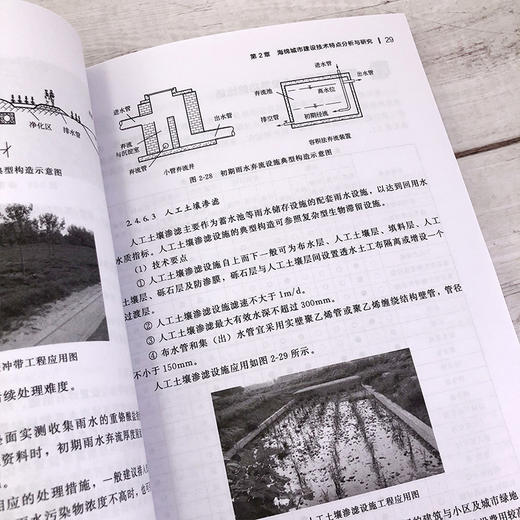 净化区
排水管
型构造示意图
冲带工程应用图
续处理难度。
面实测收集雨水的重铬酸盐
资料时，初期雨水弃流厚度
相应的处理措施，一般建议
水污染物浓度不高时，也
第2章 海绵城市建设技术特点分析与研究 29
进水管
弃流
与沉淀室
弃流管
出水管
小管弃流井
进水管
出水管
弃流池
高水位
排空管
初期径流
容积法弃流装置
图 2-28 初期雨水弃流设施典型构造示意图
2.4.6.3 人工土壤渗滤
人工土壤渗滤主要作为蓄水池等雨水储存设施的配套雨水设施，以达到回用水
水质指标。人工土壤渗滤设施的典型构造可参照复杂型生物滞留设施。
（1）技术要点
① 人工土壤渗滤设施自上而下一般可为布水层、人工土壤层、填料层、人工
土壤层、砾石层及防渗膜，砾石层与人工土壤层间设置透水土工布隔离或增设一个
过渡层。
② 人工土壤渗滤设施滤速不大于1m/d。
③ 人工土壤渗滤最大有效水深不超过300mm。
④ 布水管和集（出）水管宜采用实壁聚乙烯管或聚乙烯缠绕结构壁管，管径
不小于150mm。
人工土壤渗滤设施应用如图 2-29 所示。
人工土壤渗滤设施工程应用图
的建筑与小区及城市绿地